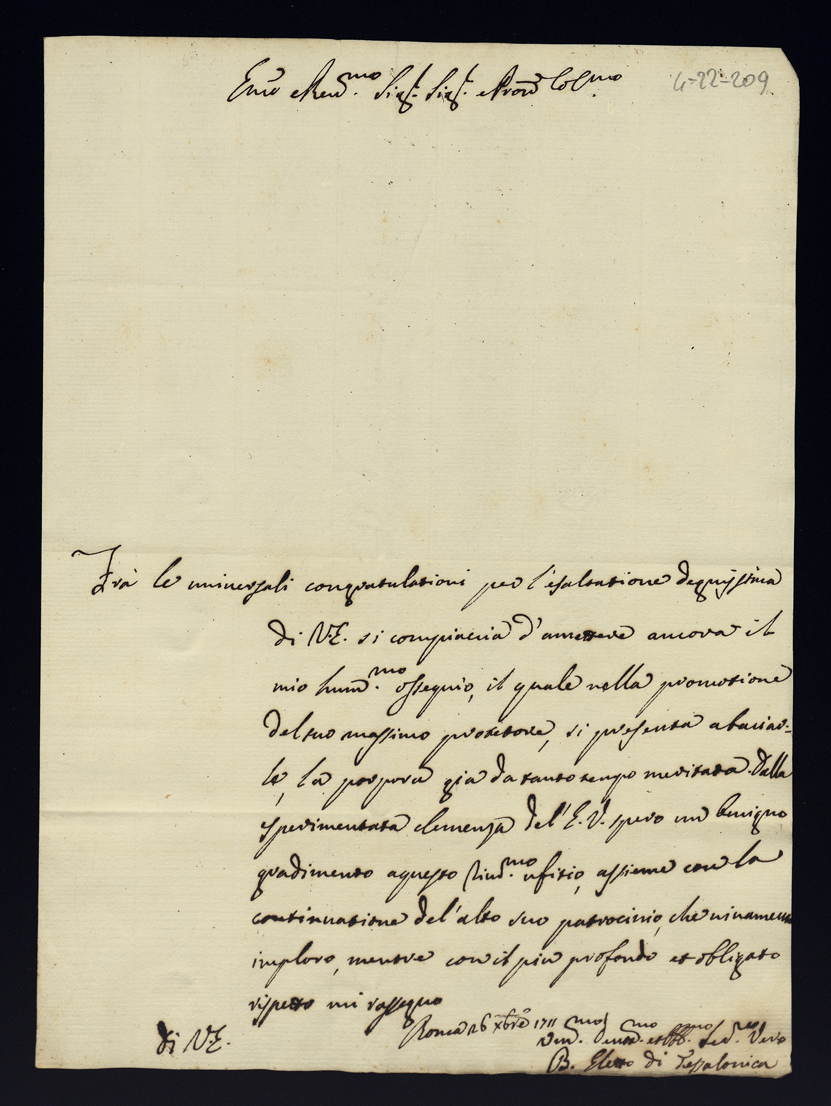 Em̃o e Reu.mo Sig.r Sig.r e Pron̄e Col.mo
4-22-209
Frà le universali congratulationi per l'esaltatione degnissima
di V.E. si compiaccia d'amettere ancora il
mio hum.mo ossequio, il quale nella promotione
del suo massimo protettore, si presenta a baciar-
le, la porpora gia da tanto tempo meritata. Dalla
esperimentata clemenza dell'E.V. spero un benigno
gradimento a questo riuer.mo ufitio, assieme con la
continuatione del'alto suo patrocinio, che vivamente
imploro, mentre con il piu profondo et obligato
rispetto mi rassegno
di V.E.
Roma 26 xbrẽ 1711
deu.mo et obb.mo Ser.re Vero
B. Eletto di Tessalonica